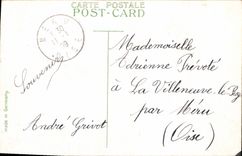 CARTE POSTALE
POST-CARD
Mademoiselle
Adrienne Prévoté
à La Villeneuve le Roy
par Méru
(Oise)
Souvenir
André Grivot
made in Germany